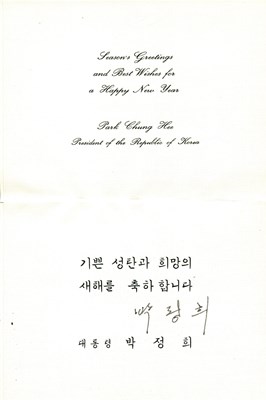 Season's Greetings
and Best Wishes for
a Happy New Year
Park Chung Hee
President of the Republic of Korea
기쁜 성탄과 희망의
새해를 축하합니다
박정희
대통령 박 정 희